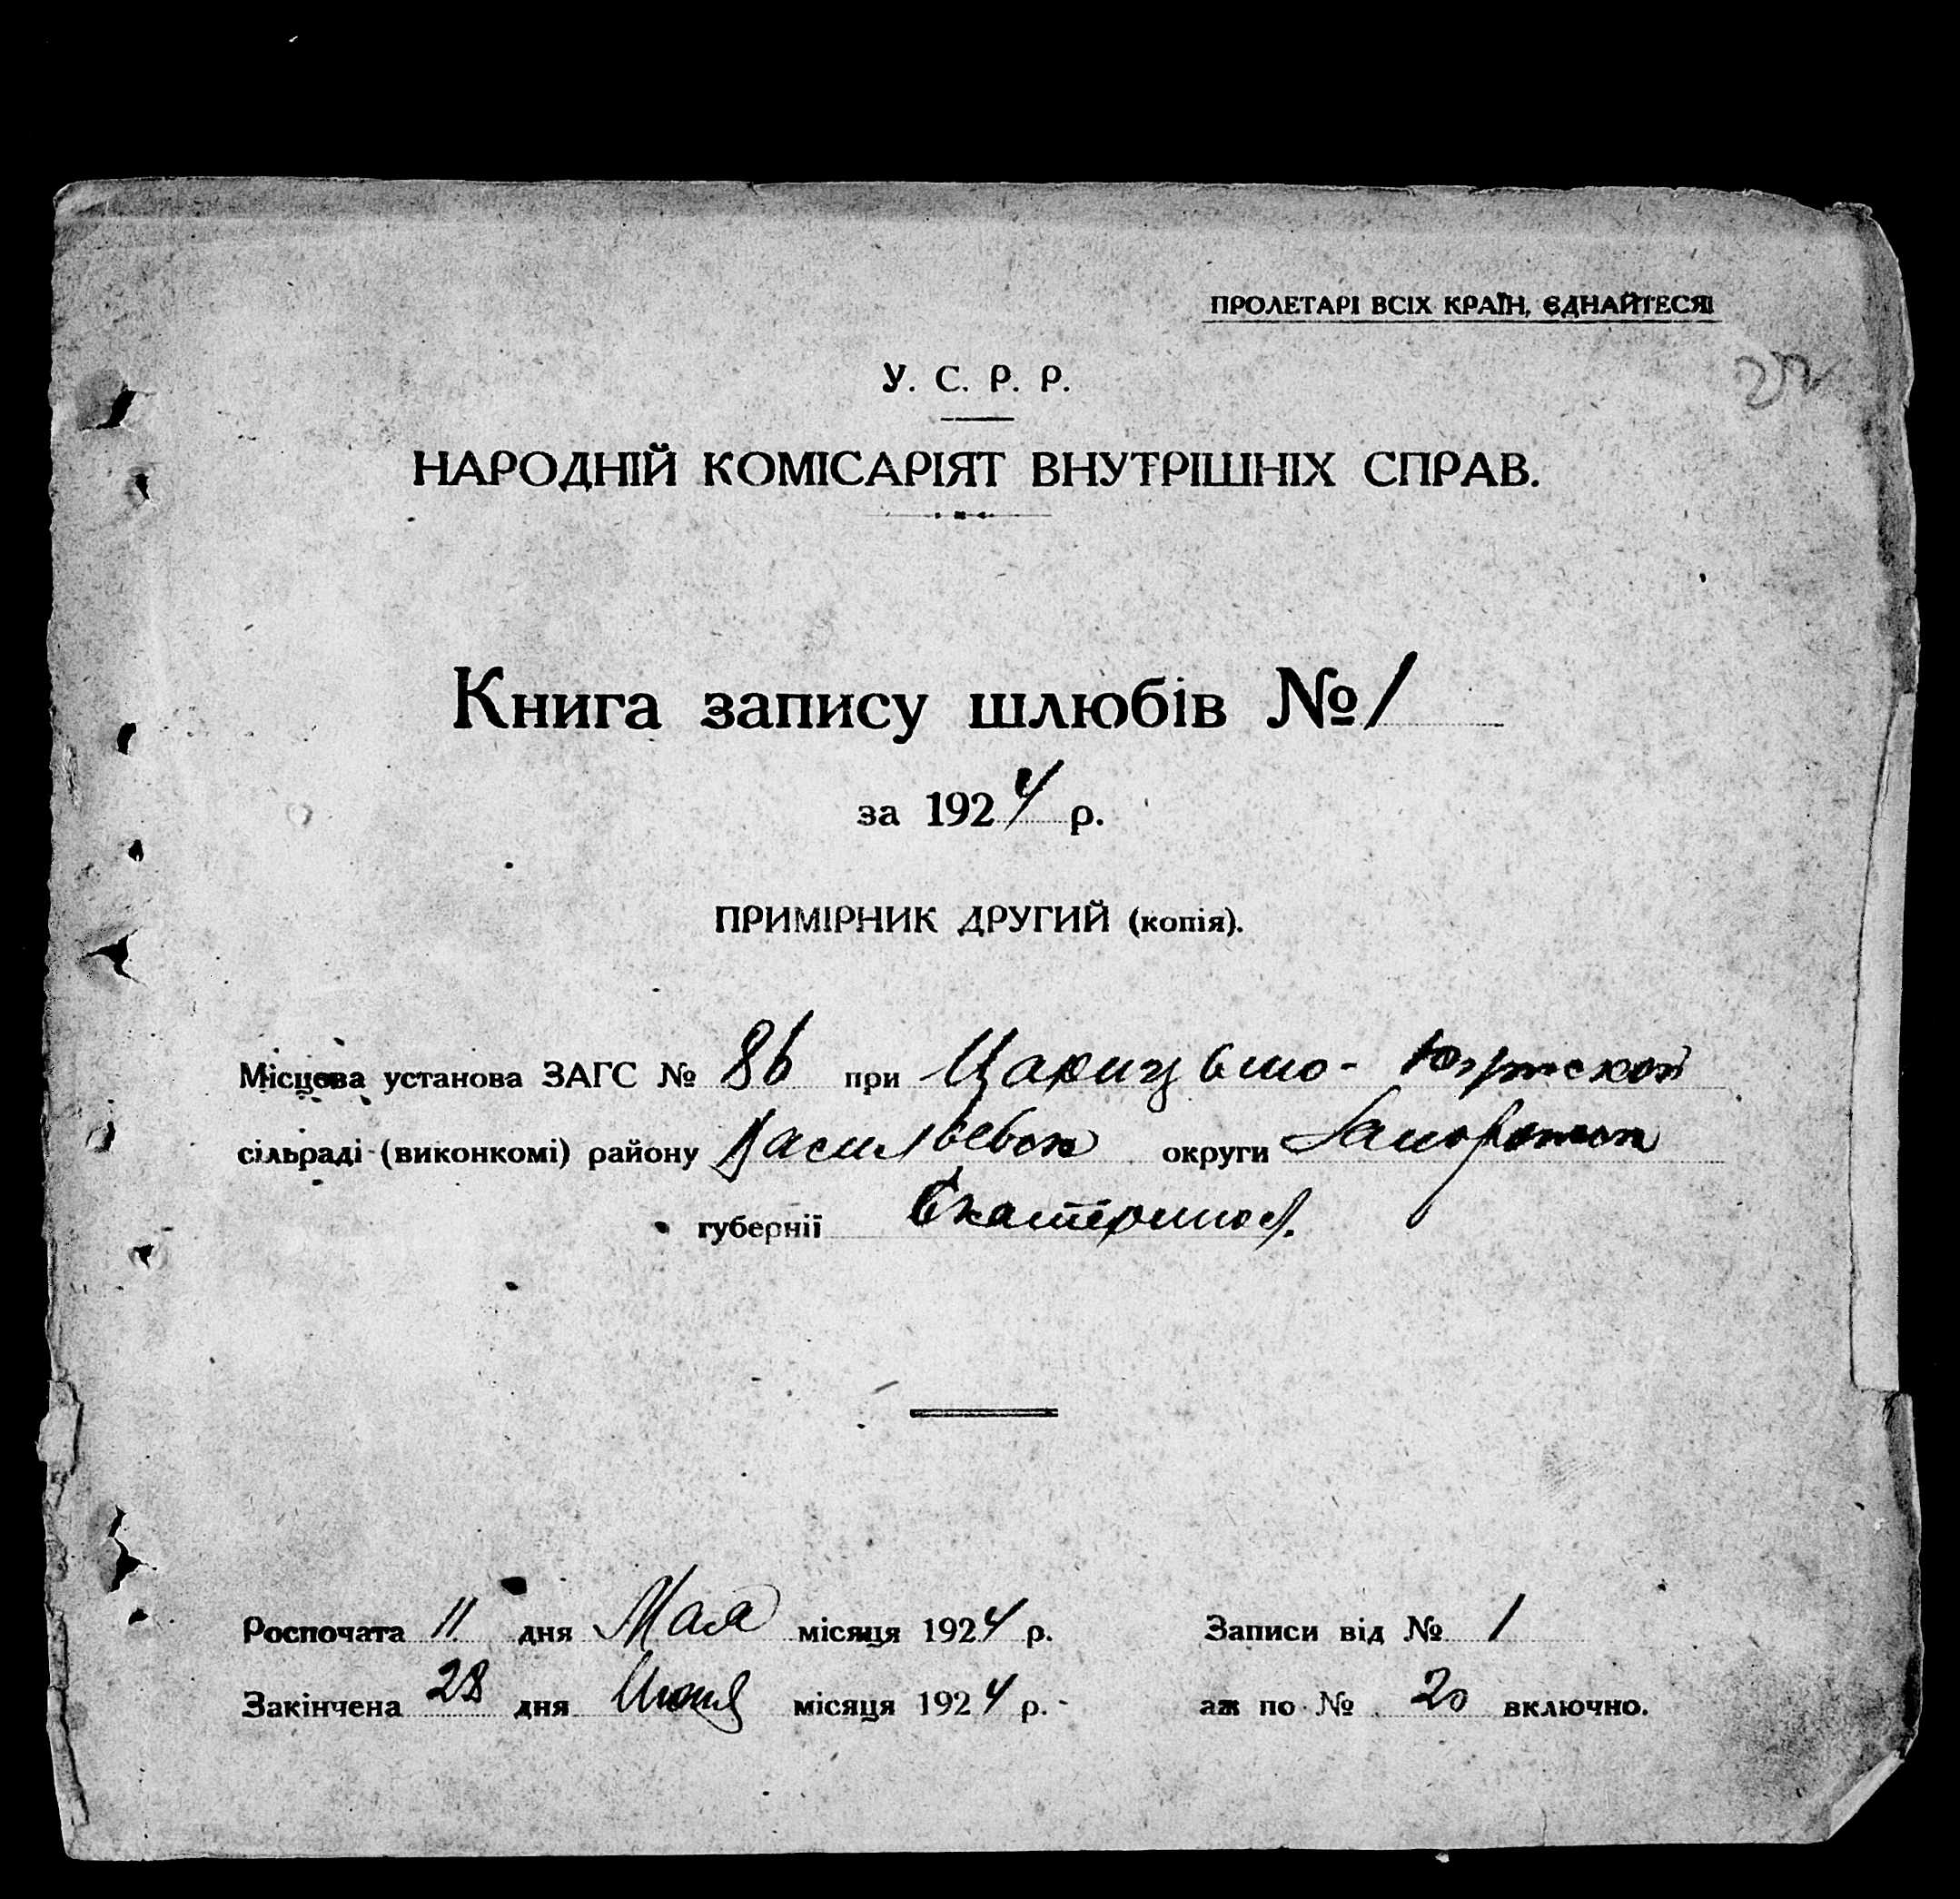 ПРОЛЕТАРІ ВСІХ КРАЇН, ЄДНАЙТЕСЯ!
У. С. Р. Р.
НАРОДНІЙ КОМІСАРІЯТ ВНУТРІШНІХ СПРАВ.
Книга запису шлюбів № 1
за 1924 р.
ПРИМІРНИК ДРУГИЙ (копія).
Місцева установа ЗАГС № 86 при
сільраді (виконкомі) району Васильевск округи Запорожск
губернії Екатериносл.
Роспочата 11 дня Мая місяця 1924 р. Записи від № 1
Закінчена 28 дня Июня місяця 1924 р. аж по № 20 включно.